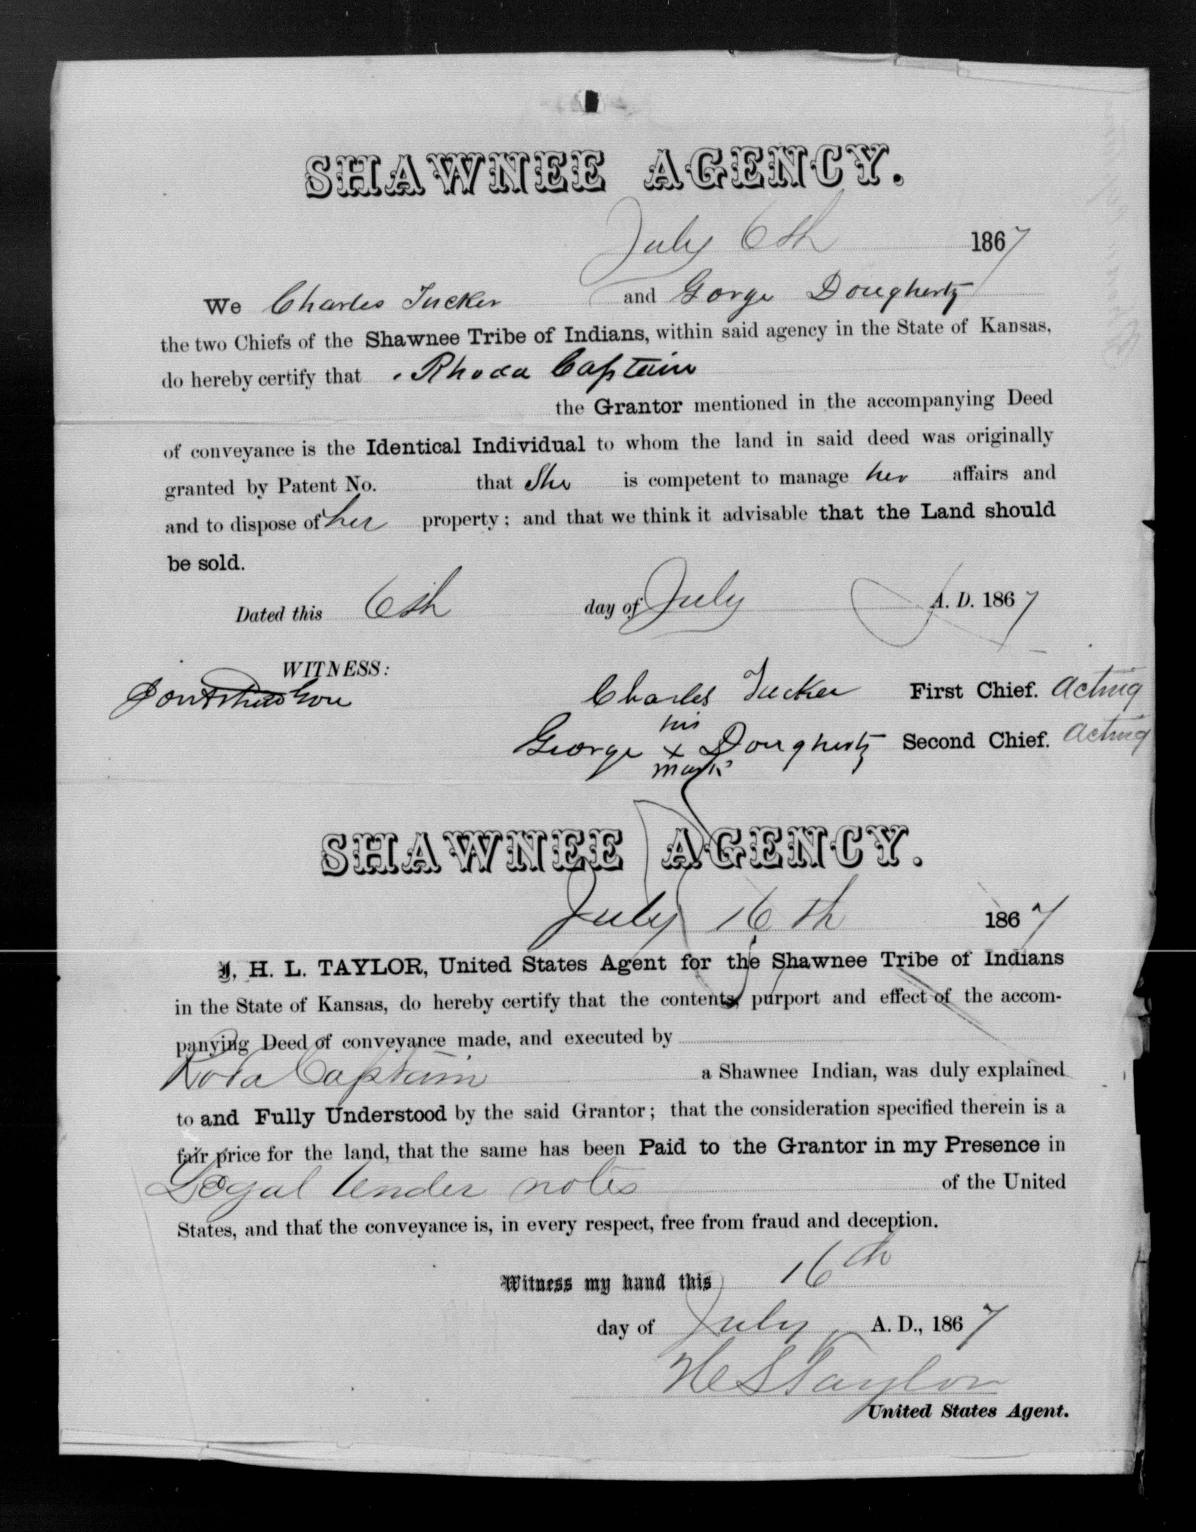 SHAWNEE AGENCY.
July 6th 1867
We Charles Tucker and Gorge Dougherty
the two Chiefs of the Shawnee Tribe of Indians, within said agency in the State of Kansas,
do hereby certify that Rhoda Captain
the Grantor mentioned in the accompanying Deed
of conveyance is the Identical Individual to whom the land in said deed was originally
granted by Patent No. that She is competent to manage her affairs and
and to dispose of her property; and that we think it advisable that the Land should
be sold.
Dated this 6th day of July A. D. 1867
WITNESS:
Charles Tucker First Chief. acting
his
George x Dougherty Second Chief. acting
mark
SHAWNEE AGENCY.
July 16th 1867
I, H. L. TAYLOR, United States Agent for the Shawnee Tribe of Indians
in the State of Kansas, do hereby certify that the contents, purport and effect of the accom-
panying Deed of conveyance made, and executed by
Roda Captain a Shawnee Indian, was duly explained
to and Fully Understood by the said Grantor; that the consideration specified therein is a
fair price for the land, that the same has been Paid to the Grantor in my Presence in
Legal tender notes of the United
States, and that the conveyance is, in every respect, free from fraud and deception.
Witness my hand this 16th
day of July A. D., 1867
H L Taylor
United States Agent.